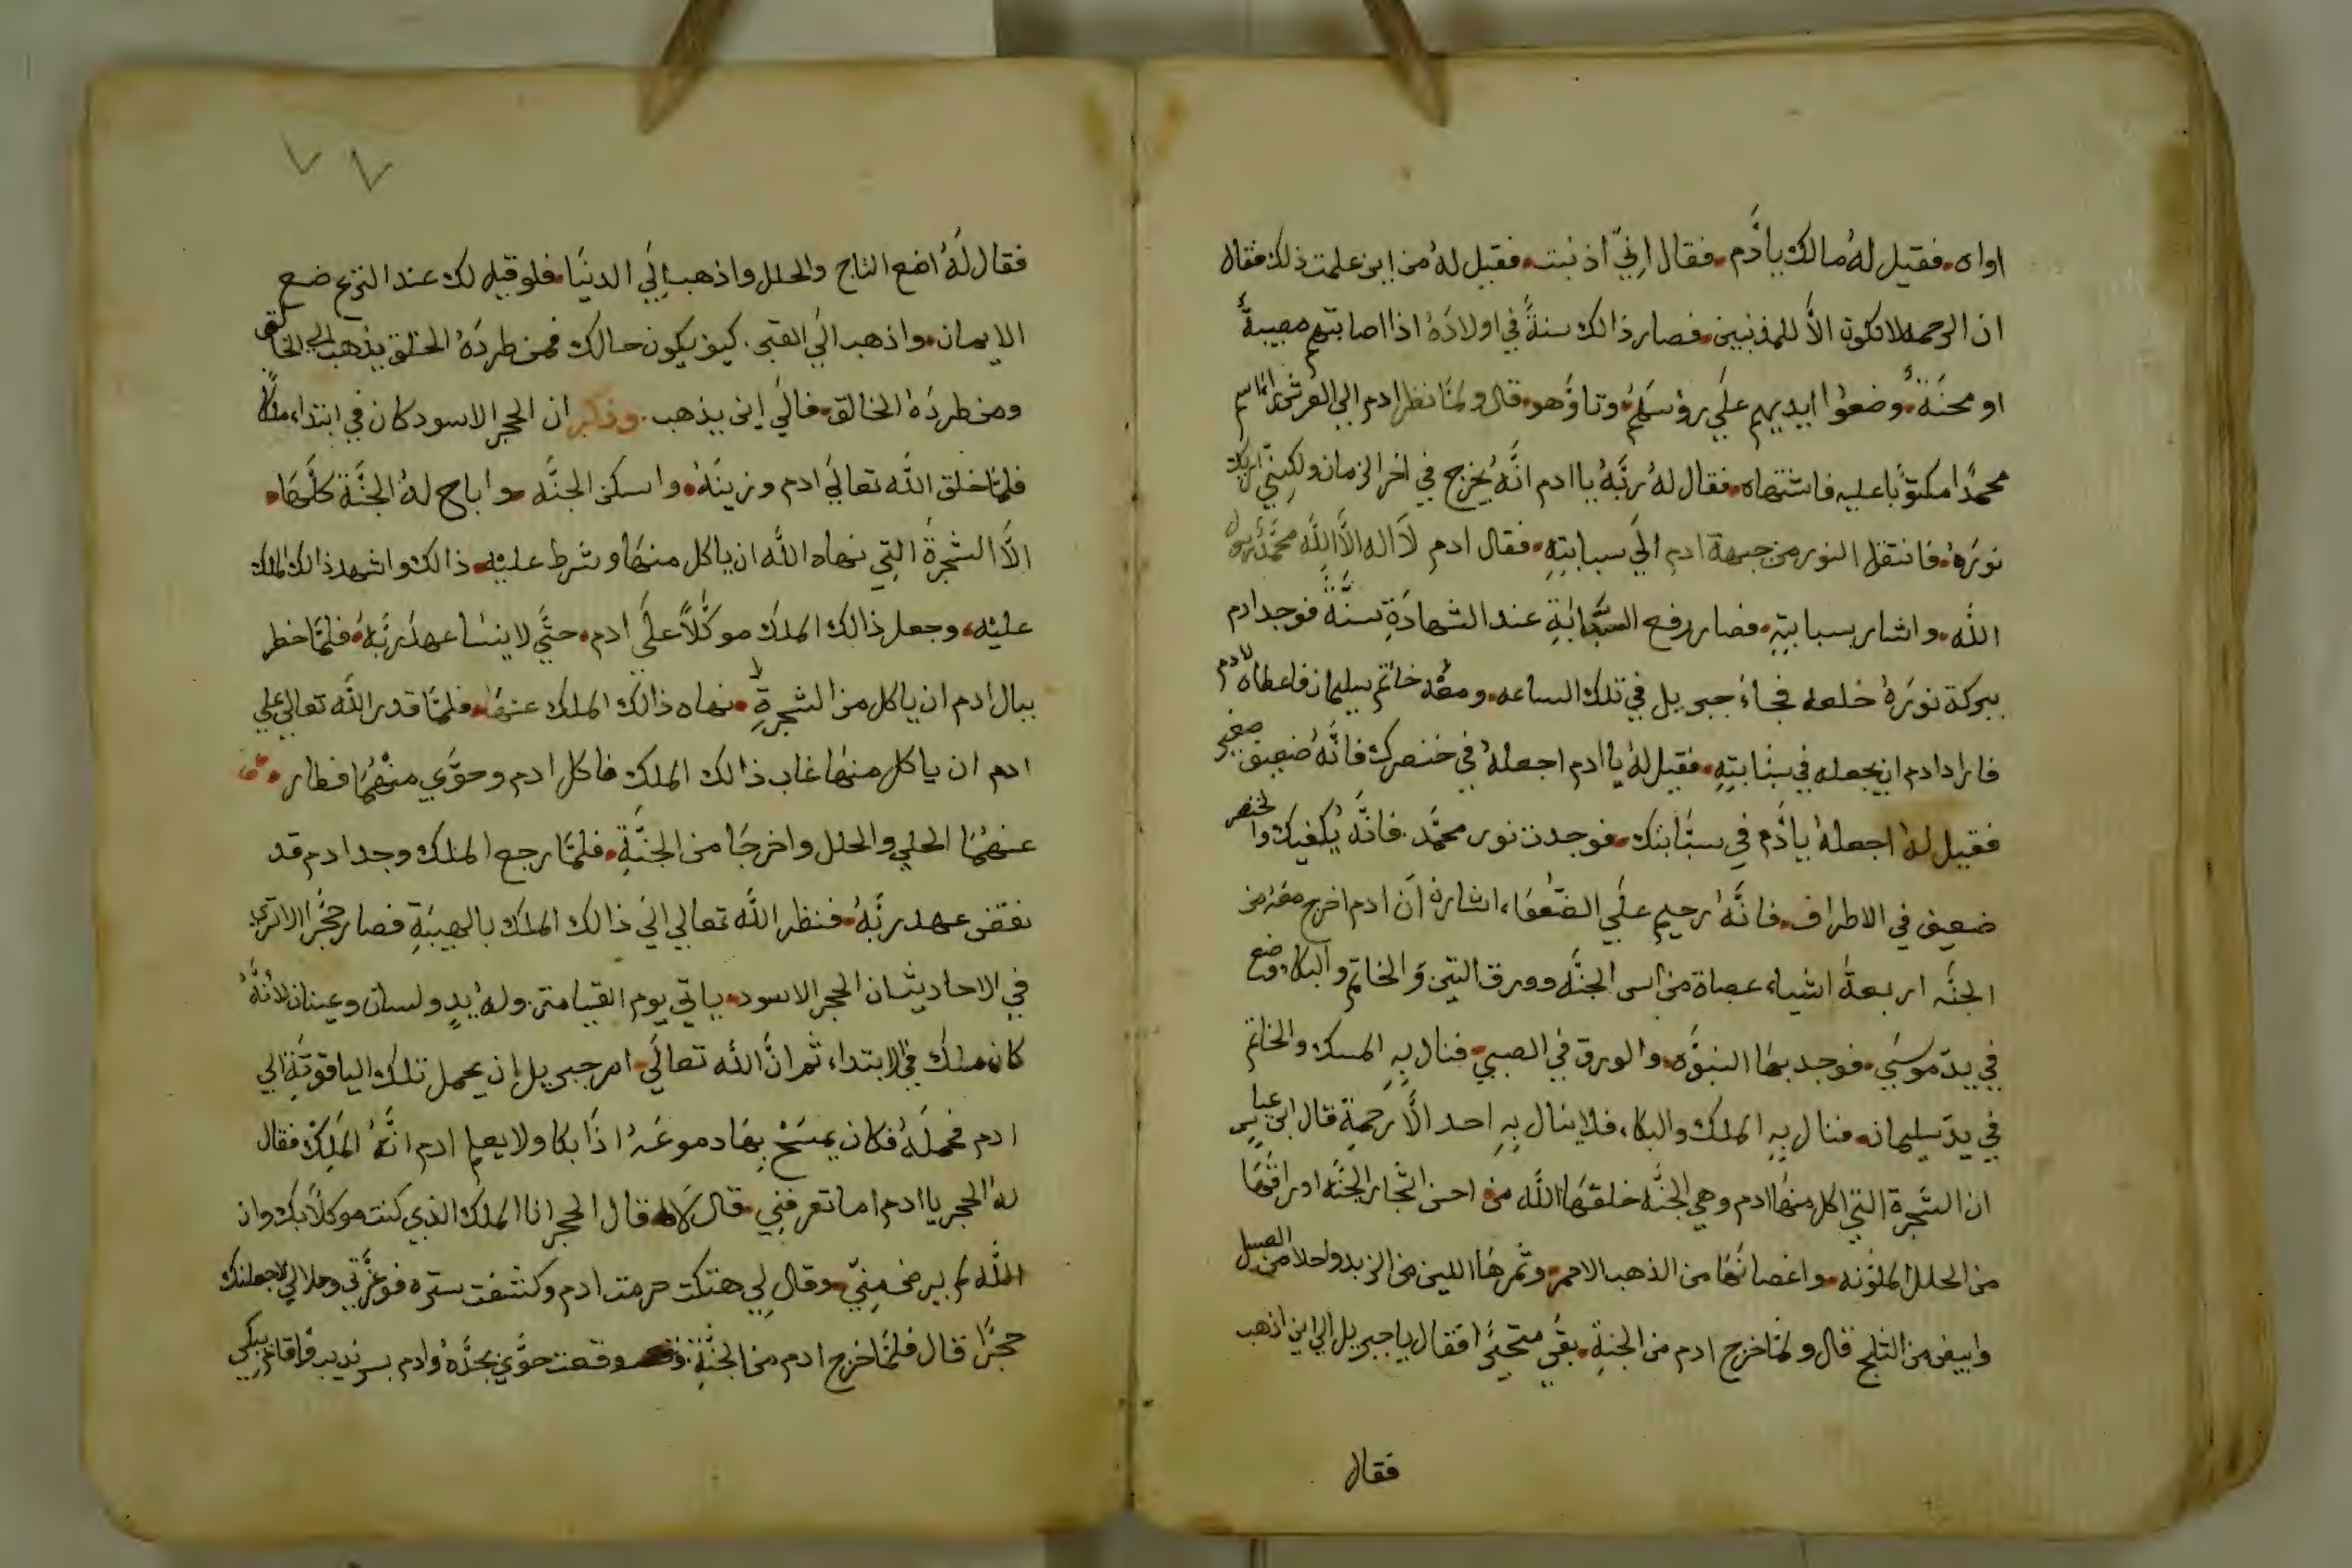 اواه. فقيل لهُ مالك يادَّم. فقال اِنيّ اذنبت. فقيل لهُ من اين علمت ذلك فقال
ان الرحمه لا تكون الاَّ للمذنبين. فصار ذالك سنةً في اولادهُ اذا اصابتهم مصيبةً
او محنَةً. وضعوُا ايديهم علَي رؤسَهُم. وتاوَّهو. قال ولمّا نظر ادم الي العرش راَ اسم
محمدًا مكتوبًا عليه فاشتهاه. فقال لهُ ربَّهُ يا ادم انَّهُ يُخرج في اخر الزمان ولكِنيّ اريك
نورَهُ. فانتقل النور من جبهة ادم الَي سبابتِهِ. فقال ادم لاَ اله الاَّ اللَّه محمَّدُ رسول
اللَّه. واشار بسبابتِهِ. فصار رفع السبَّابَةِ عند الشهادَةِ سنَّةً فوجد ادم
ببركة نورَهُ خلعه فجاءَ جبريل في تلك الساعه. ومعُه خاتم سليمان فاعطاه لادم
فاراد ادم ان يجعله في سبابتِهِ. فقيل لهُ يا ادم اجعلهُ في خنصرك فانَّهُ ضعيف صغير
فقيل لهُ اجعلهُ يادَّم في سبَّابتك. فوجدت نور محمَّد. فانَّهُ يُكفيك والخنصر
ضعيف في الاطراف. فانَّهُ رحيم علَي الضُعُفَاء، اشارة انَ ادم اخرج معَهُ من
الجنَّه اربعةُ اشياء عصاة من اس الجنَّه وورق التين وَالخاتم والبكاء، وضع
في يدّ موسَي. فوجد بهَا النبوَّه. والورق في الصبي. فنال بِهِ المسك والخاتم
في يدّ سليمان. فنال بِهِ الملك والبكاء، فلا ينال بِهِ احد الاَّ رحمة قال ابن عباس
ان الشجرة التي اكل منهَا ادم وهي الجنَّه خلقهَا اللَّه من احسن اشجار الجنَّه اوراقُهَا
من الحلل الملوّنه. واغصانُهَا من الذهب الاحمر. وثمرهَا اللين من الزبد واحلا من العسل
وابيض من الثلج قال ولمَّا خرج ادم من الجنةِ. بقَي متحيرًا فقال يا جبريل الي اين اذهب
فقال
٧٧
فقال لَهُ اضع التاج والحلل واذهب اِلَي الدنيَا. فلو قيل لك عند النزع ضع
الايمان. واذهب الَي القبر. كيف يكون حالك فمن طردَهُ الخلق يذهب الي الخالق
ومن طردَهُ الخالق. فالَي اين يذهب. وذكر ان الحجر الاسود كان في ابتداء، ملكًا
فلمّا خلق اللَّه تعالَي ادم وزينَهُ. واسكن الجنَّه. واباح لهُ الجنَّة كلَّهَا.
الاَّ الشجرةَ التِي نهاه اللَّه ان ياكل منهَا وشرط عليْه. ذالك واشهد ذالك الملك
عليْه، وجعل ذالك الملكَ موكَّلاً علَي ادم. حتَّي لا ينسَا عهدَ ربَّهُ. فلمَّا خطر
ببال ادم ان ياكل من الشجرةِ. نهاه ذالك الملك عنهَا. فلمَّا قدر اللَّه تعالي علي
ادم ان ياكل منهَا غاب ذالك الملِك فاكل ادم وحوَّي منْهُمَا فطار.
عنهُمَا الحلي والحلل واخرجَا من الجنَّةِ. فلمَّا رجع الملك وجد ادم قد
نقض عهد ربَّهُ. فنظر اللَّه تعالي الَي ذالك الملك بالهيبَةِ فصار حجَرًا الا تري
في الاحاديث ان الحجر الاسود. ياتي يوم القيامة. ولهُ يدٍ ولسان وعينان لأنَّهُ
كان ملكُ في الابتداء، ثم انَّ اللَّه تعالَي. امر جبريل ان يحمل تلك الياقوتَةِ الي
ادم فحملَهُ فكان يمسَحْ بِهَا دموعَهُ اذَا بكا ولا يعلم ادم انَّهُ الملِكْ فقال
لهُ الحجر يا ادم اما تعرفنِي. قال لاَ. قال الحجر انا الملك الذي كنت موكلاً بك وان
اللَّه لم يرض مِنِيّ. وقال لِي هتكت حرمت ادم وكشفت ستره فوعزَّتي وجلالِي لاجعلنك
حجرًا قال فلمَّا خرج ادم من الجنَّةِ وقعت حوَّي بجدَّهُ وادم بسرنديب فاقام يبكي